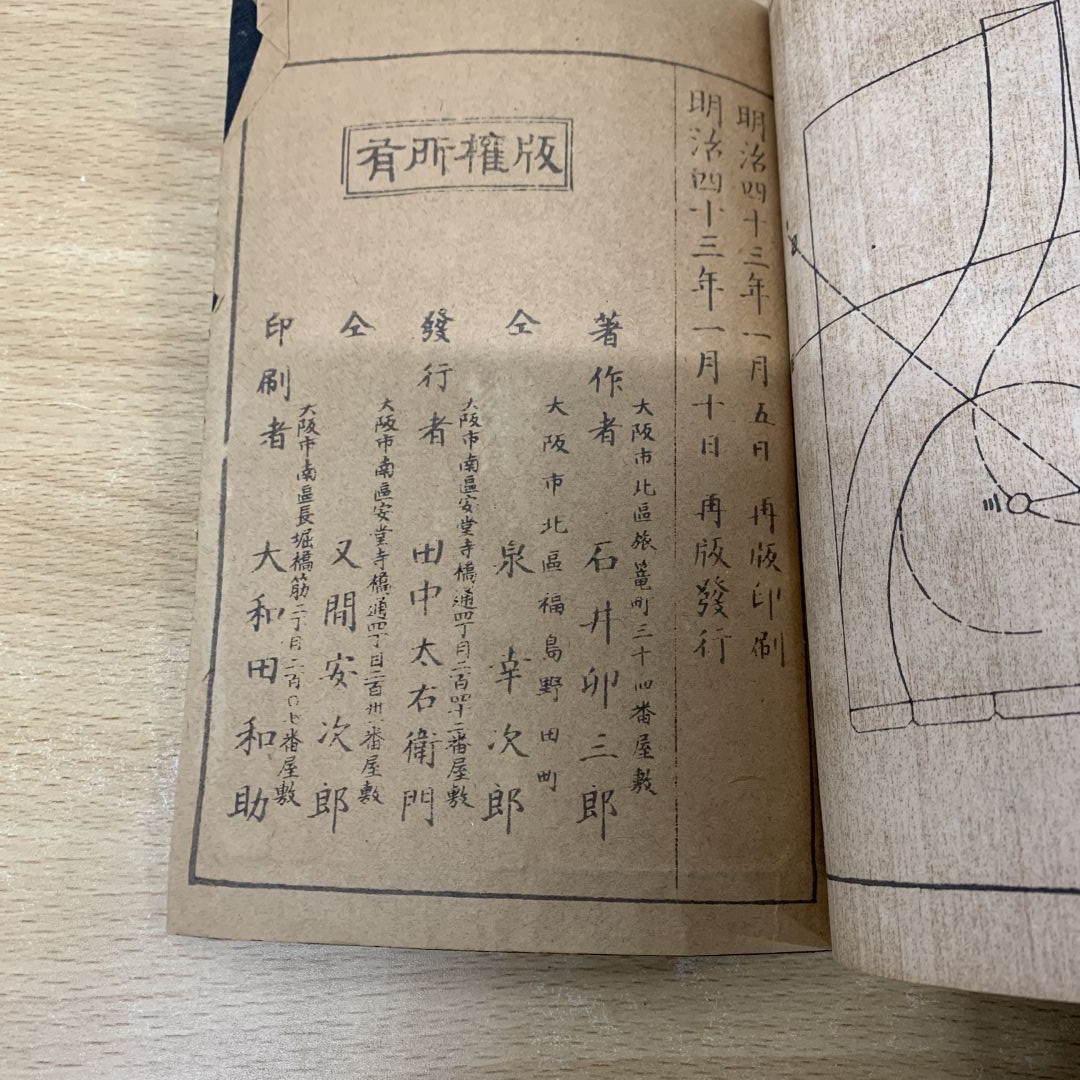 明治四十三年一月五日 再版印刷
明治四十三年一月十日 再版發行
版權所有
大阪市北區旅篭町三十四番屋敷
著作者 石井卯三郎
大阪市北區福島野田町
仝 泉幸次郎
大阪市南區安堂寺橋通四丁目二百四十二番屋敷
發行者 田中太右衛門
大阪市南區安堂寺橋通四丁目二百卅一番屋敷
仝 又間安次郎
大阪市南區長堀橋筋二丁目二百〇七番屋敷
印刷者 大和田和助